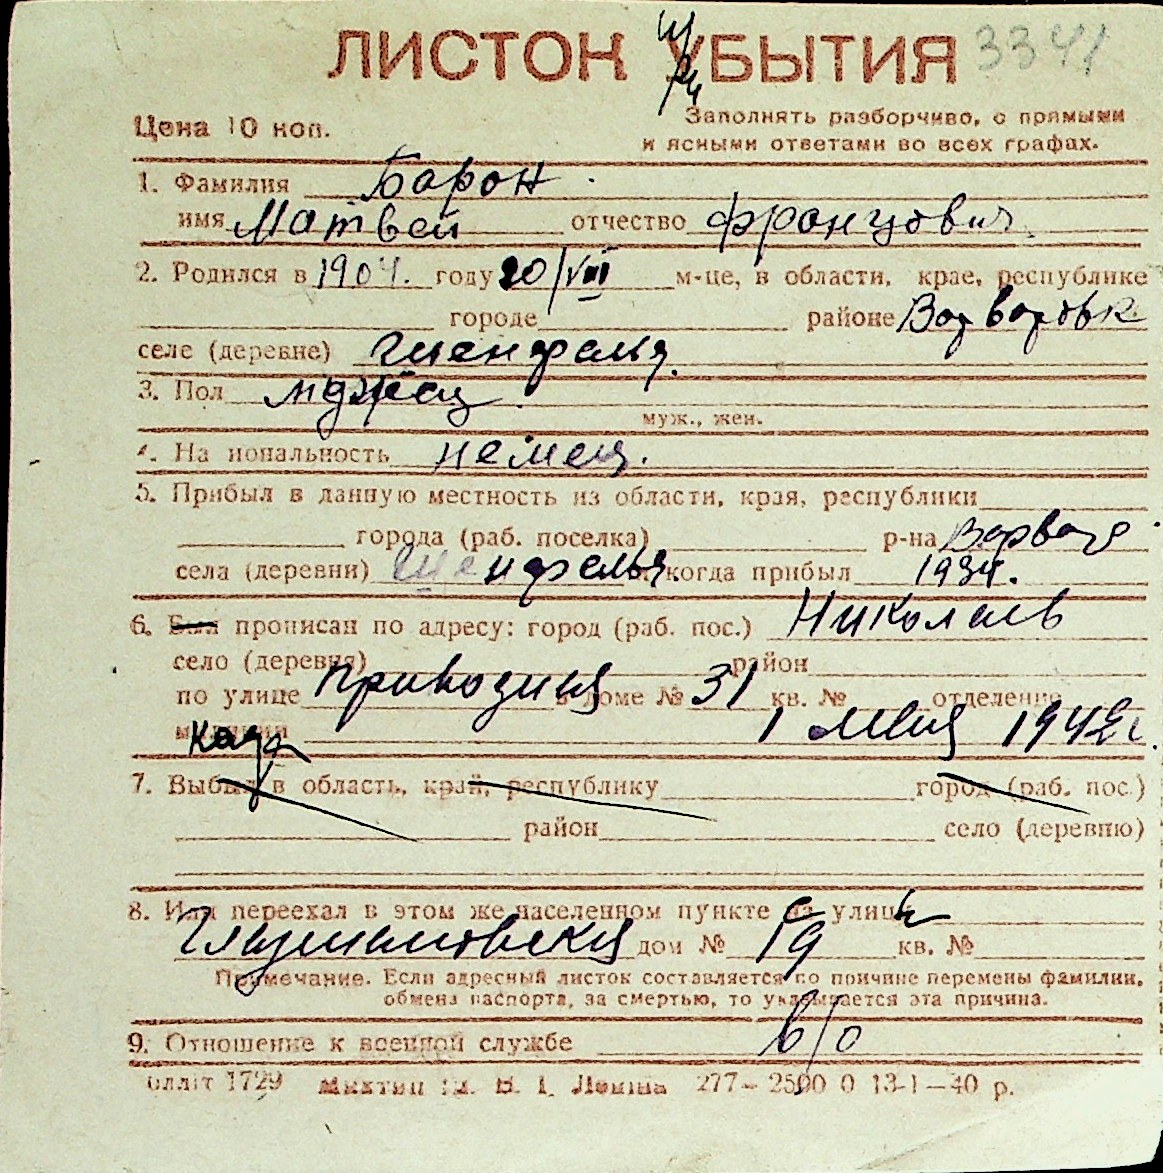 ЛИСТОК УБЫТИЯ 3341
Цена 10 коп.
Заполнять разборчиво, с прямыми
и ясными ответами во всех графах.
1. Фамилия Барон
имя Матвей отчество Францович
2. Родился в 1904. году 20/VIII м-це, в области, крае, республике
городе районе Варваровк
селе (деревне)
3. Пол
муж., жен.
4. Национальность немец.
5. Прибыл в данную местность из области, края, республики
города (раб. поселка) р-на Варвар
села (деревни) когда прибыл 1934.
6. Был прописан по адресу: город (раб. пос.) Николаев
село (деревня) район
по улице в доме № 31 кв. № отделение
милиции 1 мая 1942 г.
7. Выбыл в область, край, республику город (раб. пос.)
район село (деревню)
8. Или переехал в этом же населенном пункте на улицу
дом № 19 кв. №
Примечание. Если адресный листок составляется по причине перемены фамилии,
обмена паспорта, за смертью, то указывается эта причина.
9. Отношение к военной службе в/о
1729 им. В. И. Ленина 277–2500 0 13-1–40 р.